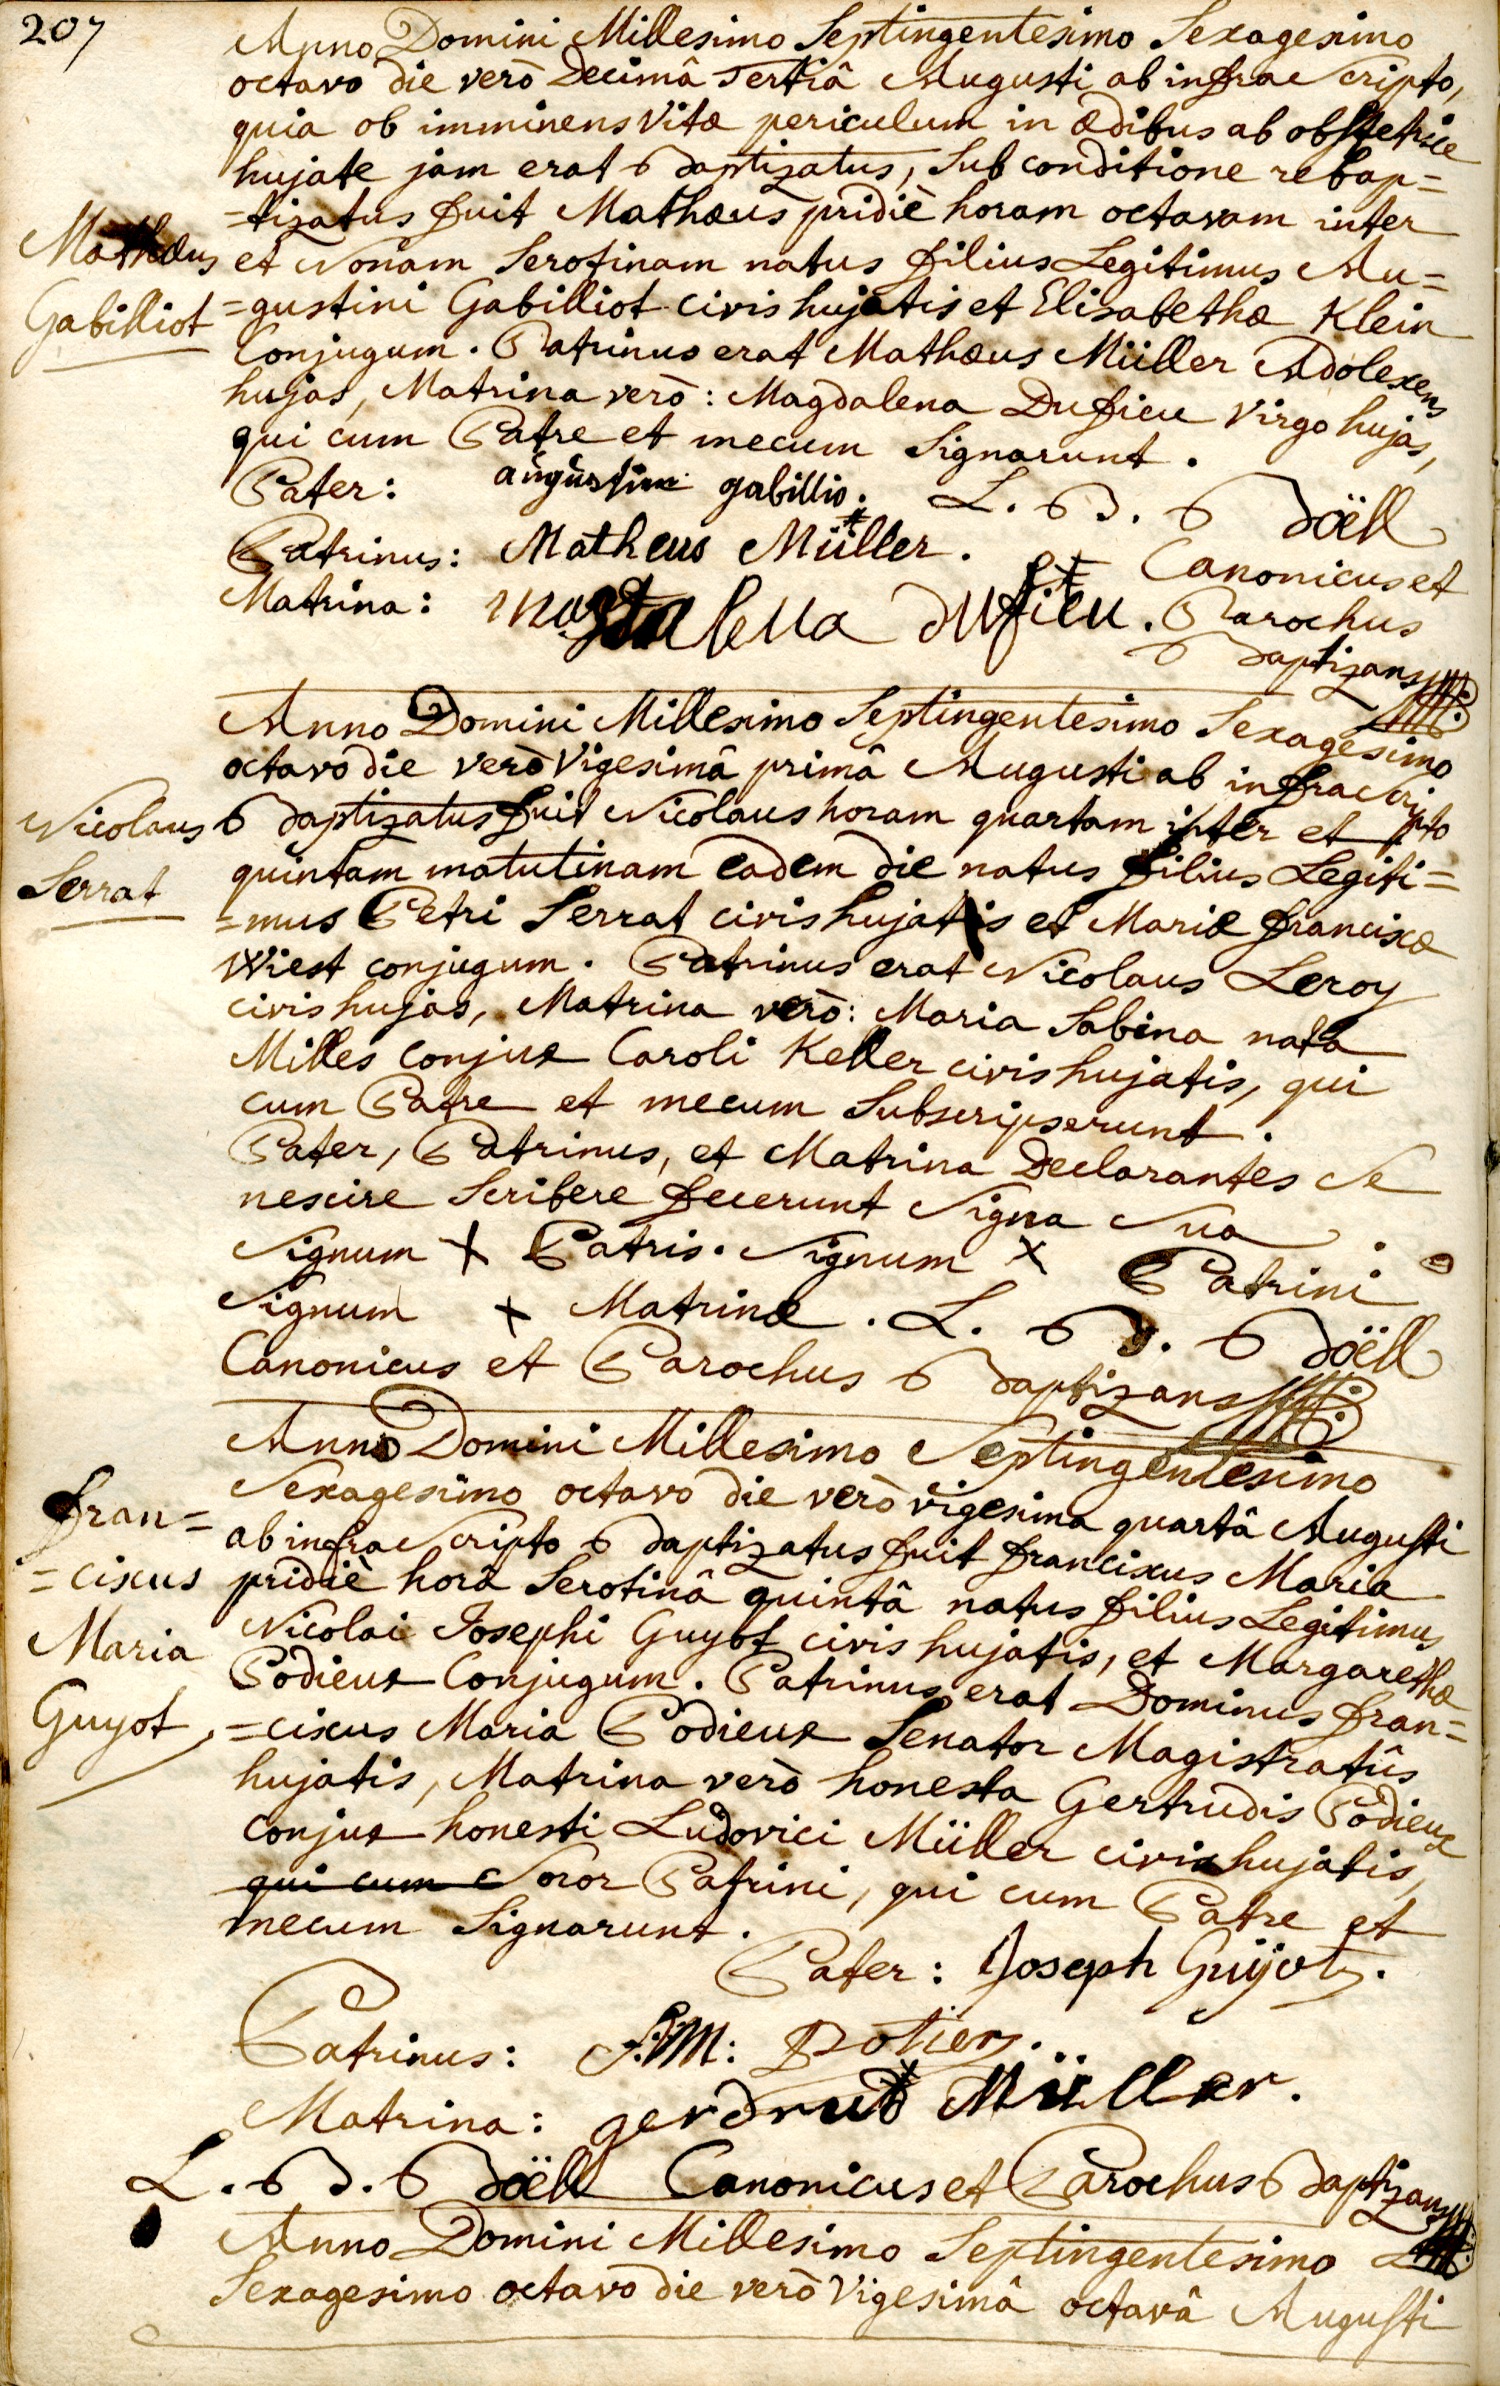 207
Anno Domini Millesimo Septingentesimo Sexagesimo
octavo die verò Decimâ Tertiâ Augusti ab infra Scripto,
quia ob imminens Vitæ periculum in ædibus ab obstetrice
hujate jam erat Baptizatus, Sub conditione rebap=
=tizatus fuit Mathæus pridiè horam octavam inter
Mathæus
et Nonam Serotinam natus filius Legitimus Au=
Gabilliot
=gustini Gabilliot civis hujatis et Elisabethæ Klein
Conjugum. Patrinus erat Mathæus Müller Adolexens
hujas, Matrina verò: Magdalena Dufieu Virgo hujas,
qui cum Patre et mecum Signarunt.
Pater: augustin gabillio. L. B. Boëll
Patrinus: Matheus Müller. Canonicus et
Matrina: magdalena dufieu. Parochus
Baptizans
Anno Domini Millesimo Septingentesimo Sexagesimo
octavo die verò Vigesimâ primâ Augusti ab infra Scripto
Nicolaus
Baptizatus fuit Nicolaus horam quartam inter et
Serrat
quintam matutinam Eadem die natus filius Legiti=
=mus Petri Serrat civis hujatis et Mariæ franciscæ
Wiest conjugum. Patrinus erat Nicolaus Leroy
civis hujas, Matrina verò: Maria Sabina nata
Milles Conjux Caroli Keller civis hujatis, qui
cum Patre et mecum Subscripserunt.
Pater, Patrinus, et Matrina Declarantes Se
nescire Scribere fecerunt Signa Sua.
Signum + Patris. Signum x Patrini
Signum + Matrinæ. L. B. Boëll
Canonicus et Parochus Baptizans
Anno Domini Millesimo Septingentesimo
Sexagesimo octavo die verò vigesima quartâ Augusti
fran=
ab infra Scripto Baptizatus fuit francixus Maria
=cixus
pridiè horâ Serotinâ quintâ natus filius Legitimus
Maria
Nicolai Josephi Guyot civis hujatis, et Margarethæ
Podieux Conjugum. Patrinus erat Dominus fran=
Guyot
=cixus Maria Podieux Senator Magistratûs
hujatis, Matrina verò honesta Gertrudis Podieux
Conjux honesti Ludovici Müller civis hujatis,
qui cum Soror Patrini, qui cum Patre et
mecum Signarunt.
Pater: Joseph Guÿot.
Patrinus: F:M:
Matrina: gerdrud Müller.
L. B. Boëll Canonicus et Parochus Baptizans
Anno Domini Millesimo Septingentesimo
Sexagesimo octavo die verò Vigesimâ octavâ Augusti